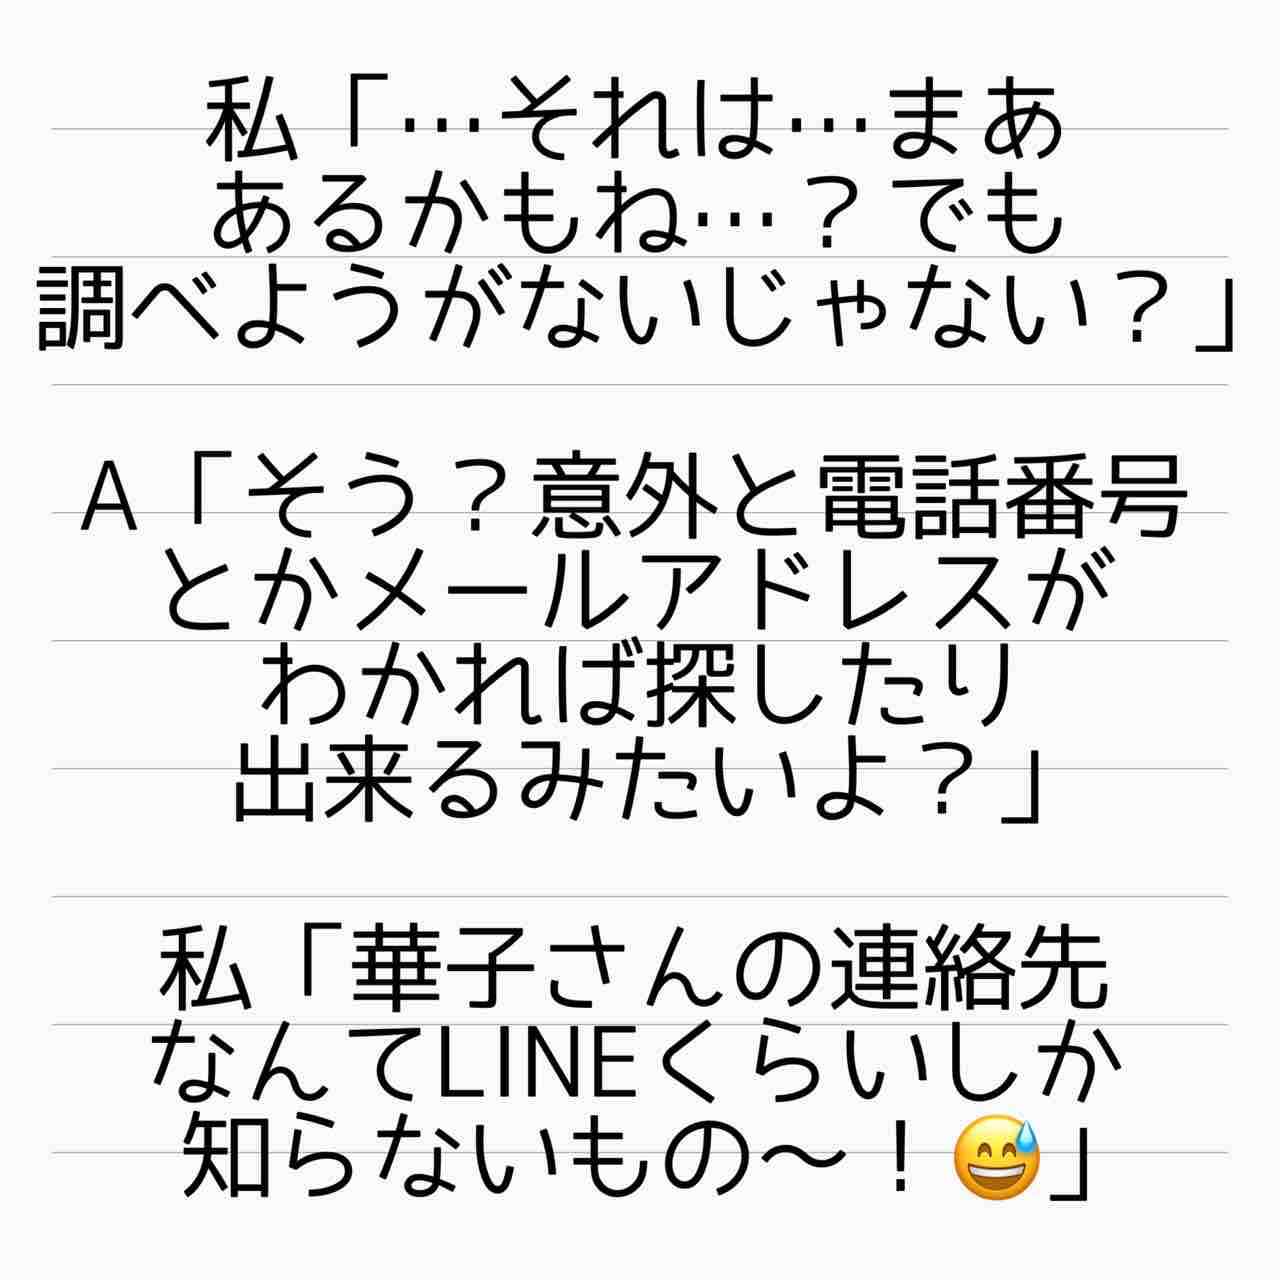 私「…それは…まあ
あるかもね…？でも
調べようがないじゃない？」
A「そう？意外と電話番号
とかメールアドレスが
わかれば探したり
出来るみたいよ？」
私「華子さんの連絡先
なんてLINEくらいしか
知らないもの〜！😅」